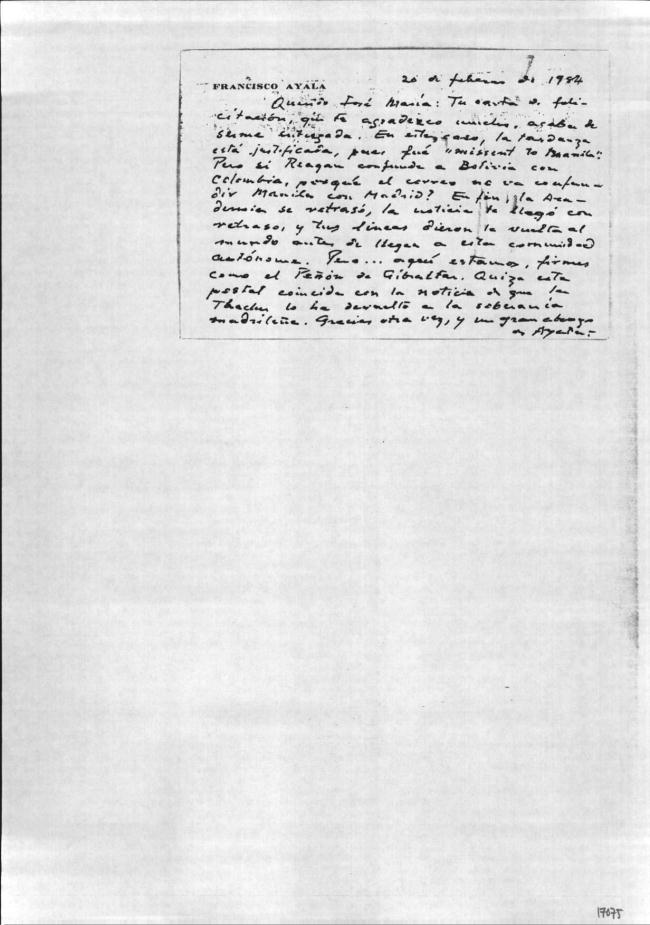 FRANCISCO AYALA
20 de febrero de 1984
Querido José María: Tu carta de feli-
citación, que te agradezco mucho, acaba de
serme entregada. En este caso, la tardanza
está justificada, pues fué "missent to Manila".
Pero si Reagan confunde a Bolivia con
Colombia, porqué el correo no va confun-
dir Manila con Madrid? En fin, la Aca-
demia se retrasó, la noticia te llegó con
retraso, y tus líneas dieron la vuelta al
mundo antes de llegar a esta comunidad
autónoma. Pero... aquí estamos, firmes
como el Peñón de Gibraltar. Quizá esta
postal coincida con la noticia de que la
Thacher lo ha devuelto a la soberanía
madrileña. Gracias otra vez, y un gran abrazo
de Ayala.-
17075